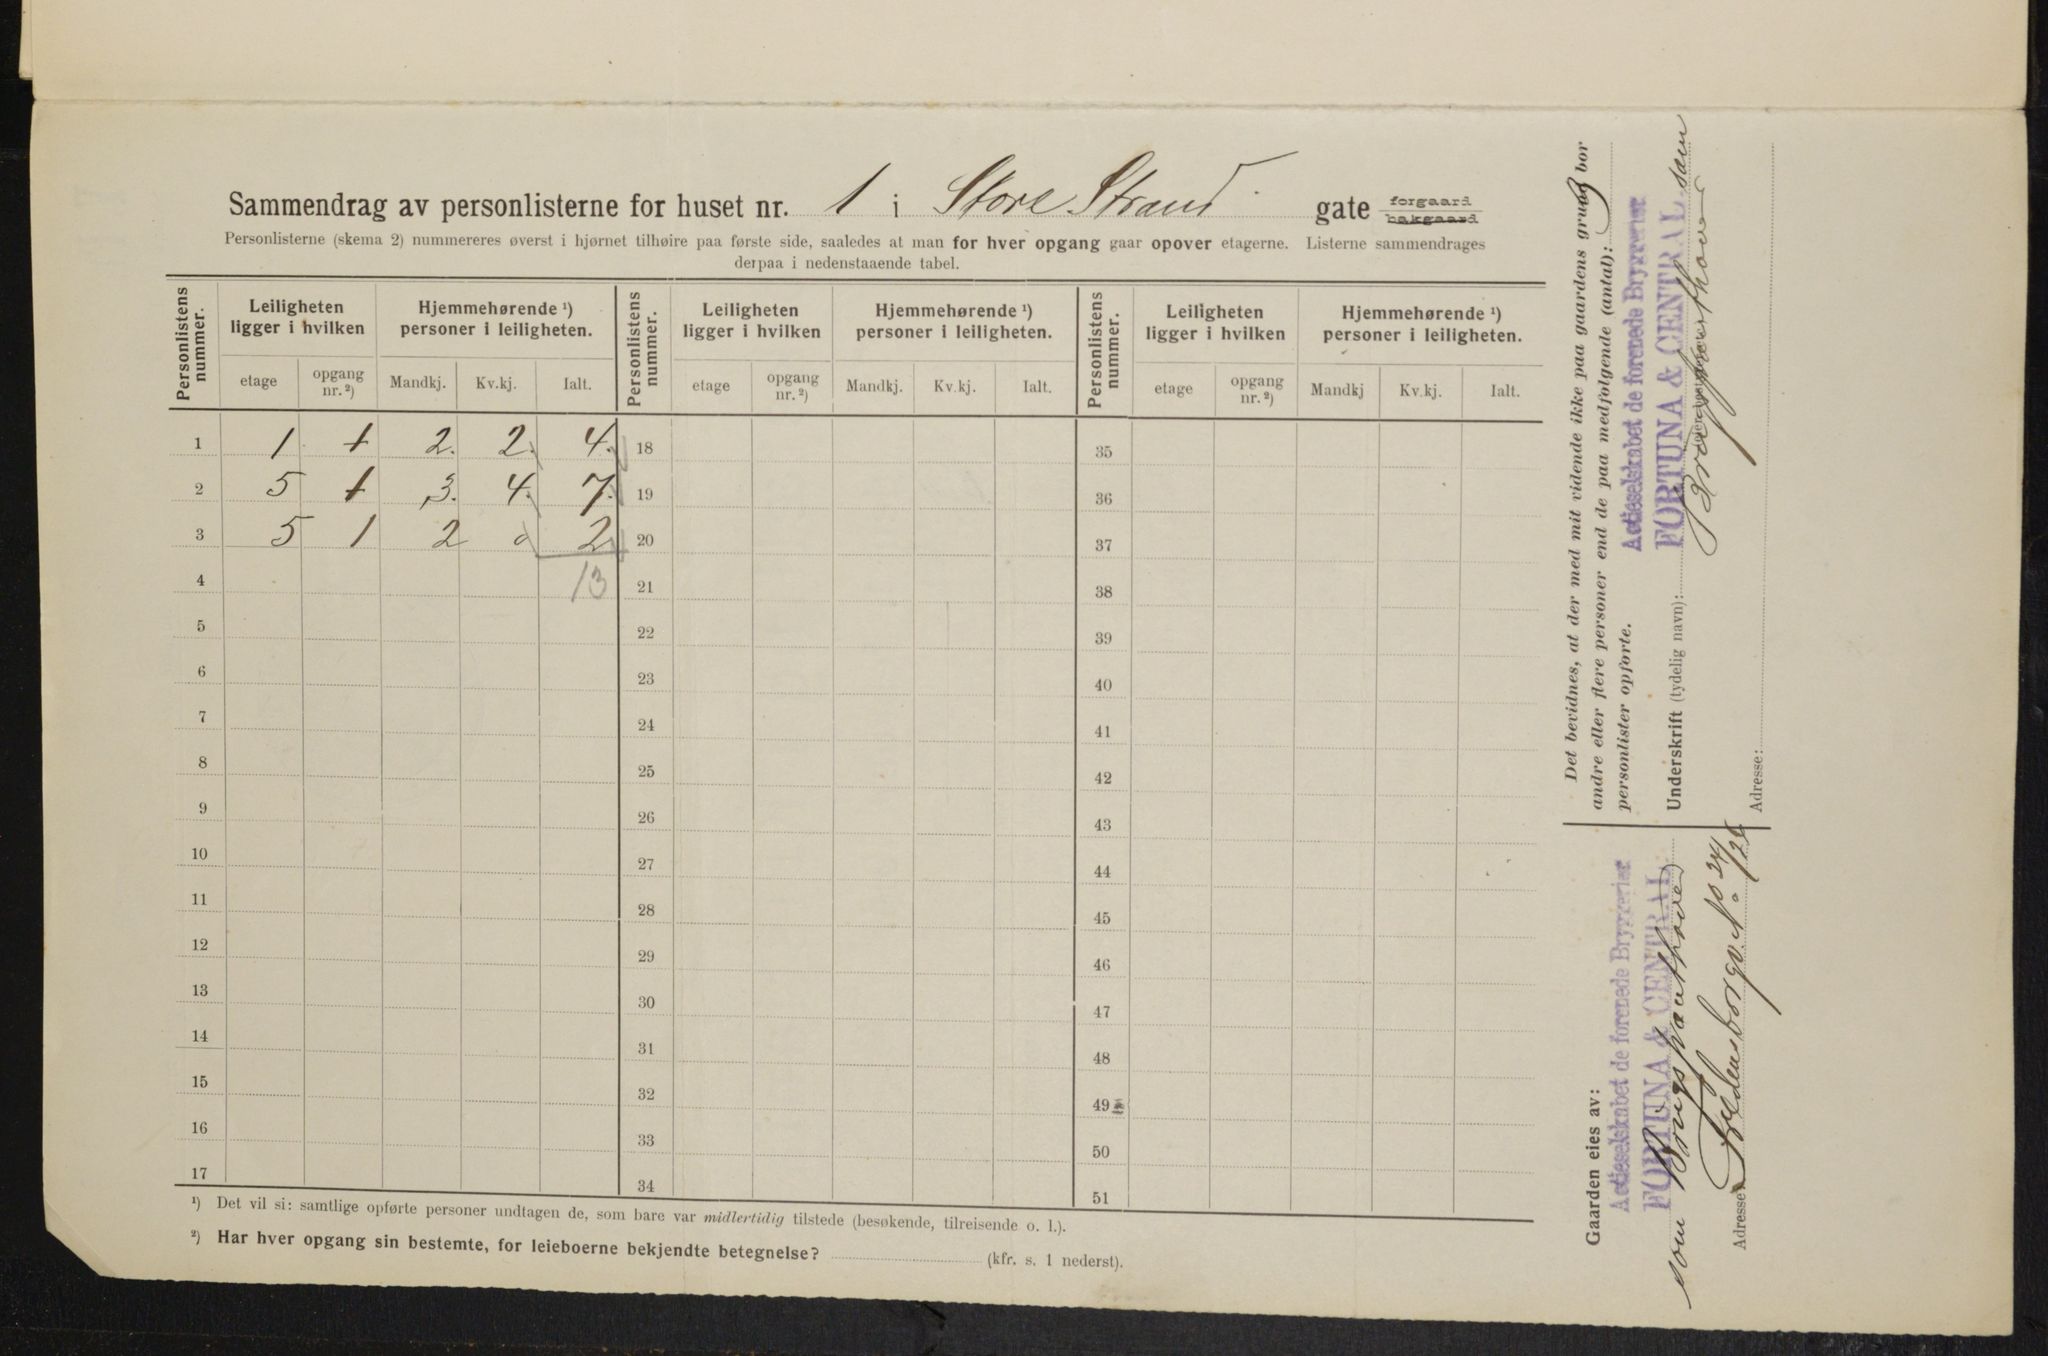 Sammendrag av personlisterne for huset nr. 1 i Store Strand gate forgaard bakgaard
Personlisterne (skema 2) nummereres øverst i hjørnet tilhøire paa første side, saaledes at man for hver opgang gaar opover etagerne. Listerne sammendrages
derpaa i nedenstaaende tabel.
Personlistens nummer. Leiligheten ligger i hvilken Hjemmehørende ¹) personer i leiligheten. Personlistens nummer. Leiligheten ligger i hvilken Hjemmehørende ¹) personer i leiligheten. Personlistens nummer. Leiligheten ligger i hvilken Hjemmehørende ¹) personer i leiligheten.
etage opgang nr. ²) Mandkj. Kv.kj. Ialt. etage opgang nr. ²) Mandkj. Kv.kj. Ialt. etage opgang nr. ²) Mandkj Kv.kj. Ialt.
1 1 1 2. 2. 4. 18 35
2 5 1 3. 4. 7. 19 36
3 5 1 2 0 2 20 37
4 13 21 38
5 22 39
6 23 40
7 24 41
8 25 42
9 26 43
10 27 44
11 28 45
12 29 46
13 30 47
14 31 48
15 32 49
16 33 50
17 34 51
¹) Det vil si: samtlige opførte personer undtagen de, som bare var midlertidig tilstede (besøkende, tilreisende o. l.).
²) Har hver opgang sin bestemte, for leieboerne bekjendte betegnelse? (kfr. s. 1 nederst).
Det bevidnes, at der med mit vidende ikke paa gaardens grund bor
andre eller flere personer end de paa medfølgende (antal): 3
personlister opførte.
Actieselskabet de forenede Bryggerier
FORTUNA & CENTRAL som
Underskrift (tydelig navn):
Adresse:
Gaarden eies av:
Actieselskabet de forenede Bryggerier
FORTUNA & CENTRAL
som Brugspanthaver
Adresse: Fredensborgv. No 24/26